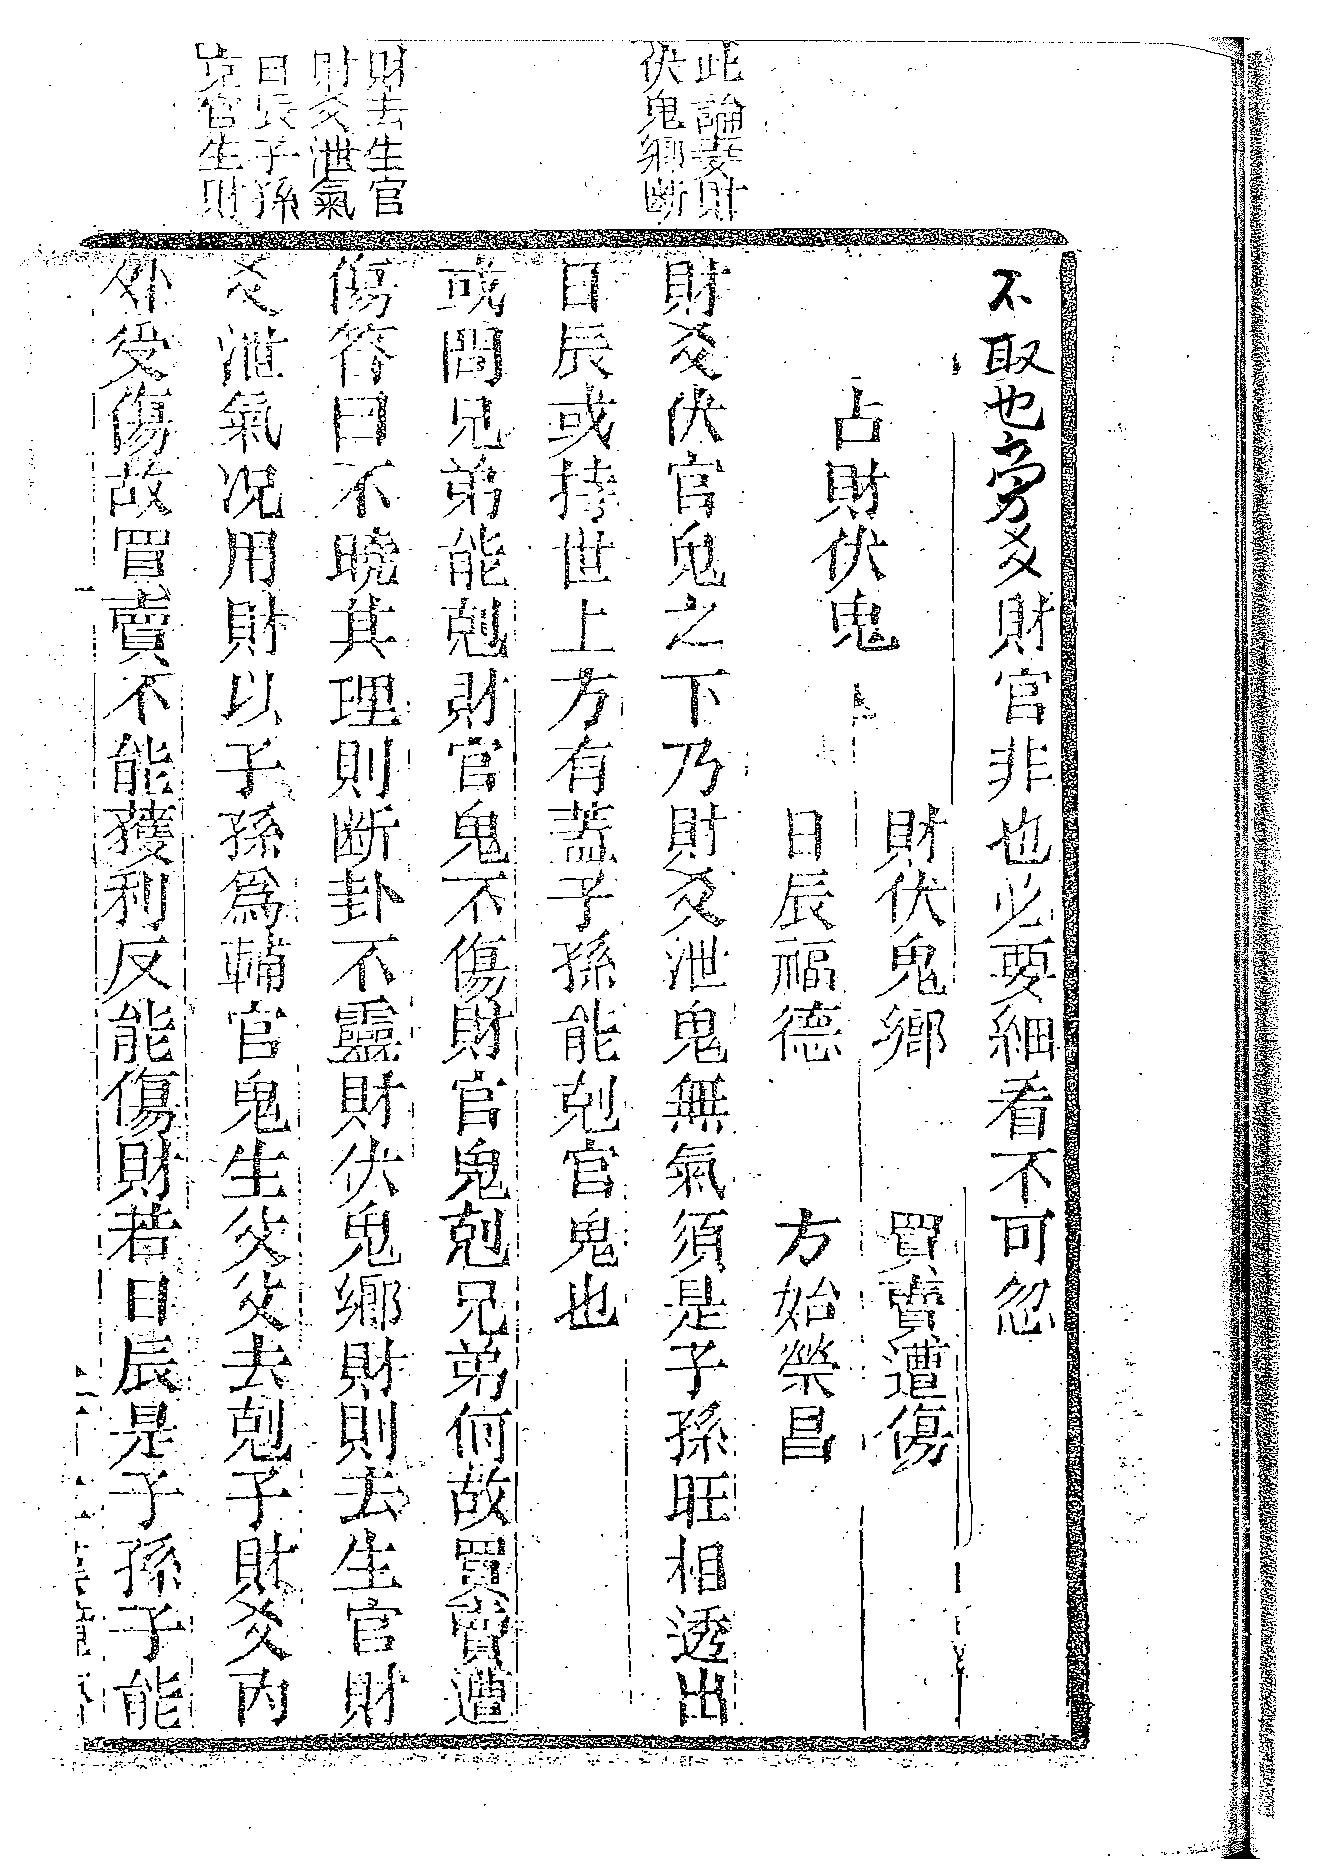 此論妻財
伏鬼鄉断
財去生官
財爻泄氣
日辰子孫
克官生財
不取也旁爻財官非也必要細看不可忽
占財伏鬼
財伏鬼鄉 買賣遭傷
日辰福德 方始榮昌
財爻伏官鬼之下乃財爻泄鬼無氣須是子孫旺相透出
日辰或持世上方有蓋子孫能剋官鬼也
或問兄弟能剋財官鬼不傷財官鬼剋兄弟何故買賣遭
傷答曰不曉其理則断卦不靈財伏鬼鄉財則去生官財
爻泄氣况用財以子孫爲輔官鬼生父父去剋子財爻内
外受傷故買賣不能獲利反能傷財若日辰是子孫子能